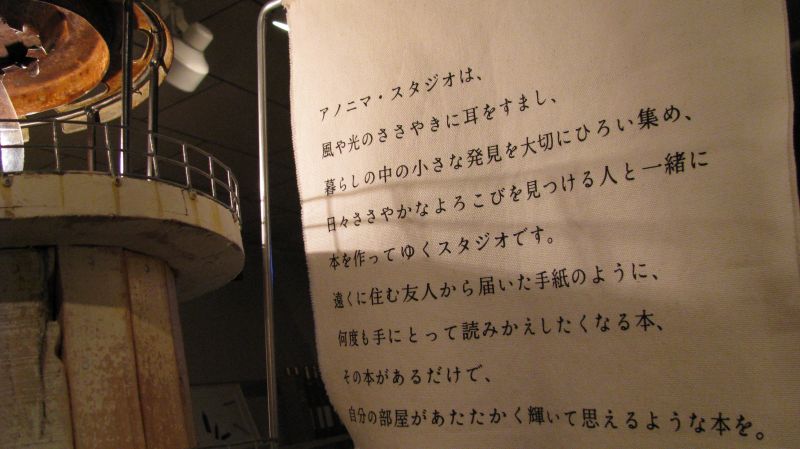 アノニマ・スタジオは、
風や光のささやきに耳をすまし、
暮らしの中の小さな発見を大切にひろい集め、
日々ささやかなよろこびを見つける人と一緒に
本を作ってゆくスタジオです。
遠くに住む友人から届いた手紙のように、
何度も手にとって読みかえしたくなる本、
その本があるだけで、
自分の部屋があたたかく輝いて思えるような本を。